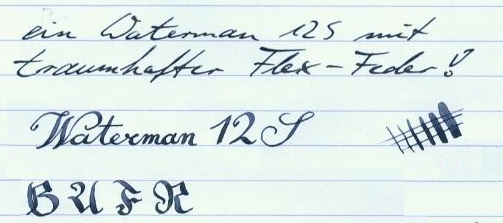 ein Waterman 12S mit
traumhafter Flex-Feder!
Waterman 12S
B U F R